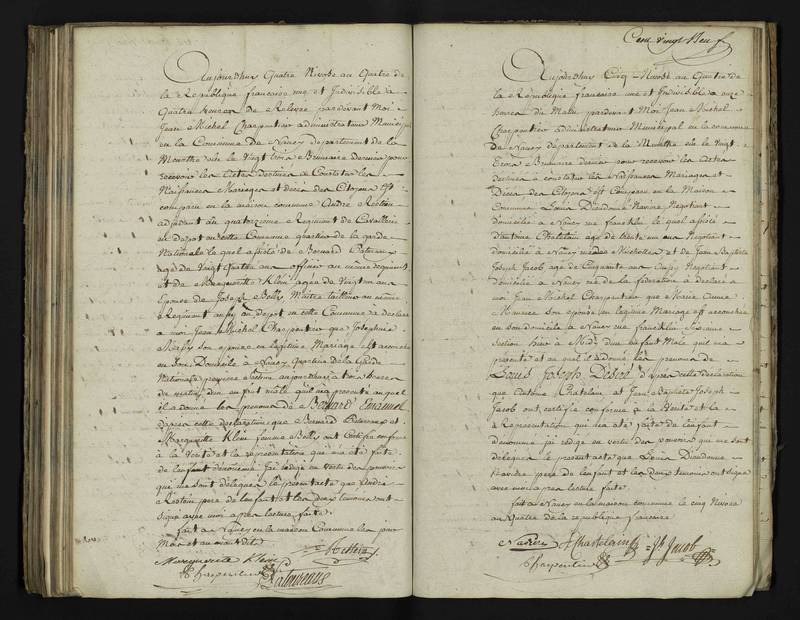 Aujourdhuy Quatre Nivose an Quatre de
la République francaise une et Indivisible à
Quatre heures de Relevée pardevant Moi
Jean Michel Charpentier administrateur Municipal
en la Commune de Nancy departement de la
Meurthe élu le Vingt trois Brumaire dernier pour
recevoir les actes destinés à Constater les
Naissances Mariages et décès des Citoyens Est
comparu en la maison commune André
adjudant au quatorzieme Regiment de Cavallerie
en dépot en cette Commune quartier de la garde
Nationale lequel assisté de Bernard
agé de Vingt Quatre ans officier au même Regiment
et de Marguerite Klein agée de Vingt
Epouse de Joseph Maitre tailleur au même
Regiment aussy en dépot en cette Commune a déclaré
à moi Jean Michel Charpentier que Josephine
son épouse en légitime Mariage est accouchée
en son Domicile à Nancy Quartier de la Garde
Nationale aujourdhuy à trois heures
du matin d'un enfant mâle qu'il m'a presenté auquel
il a donné les prenoms de Bernard Emanuel
dapres cette déclaration que Bernard et
Marguerite Klein femme ont Certifié conforme
à la Verité et la représentation qui m'a été faite
de l'enfant dénommé J'ai rédigé en vertu des pouvoirs
qui me sont délégués le présent acte que
pere de lenfant et les deux temoins ont
signé avec moi apres lecture faite
fait à Nancy en la maison Commune les jour
Mois et an avant dits
Marguerite Klein
Charpentier
Cent vingt Neuf
Aujourdhuy Cinq Nivose an Quatre de
la République francaise une et indivisible à onze
heures du Matin pardevant Moi Jean Michel
Charpentier administrateur Municipal en la commune
de Nancy departement de la Meurthe élu le Vingt
Trois Brumaire dernier pour recevoir les actes
destinés à constater les Naissances Mariages et
Décès des Citoyens est Comparu en la Maison
Commune Louis Dieudonné Negotiant
domicilié à Nancy rue franklin lequel assisté
d'Antoine Chatelain agé de trente un ans Negotiant
domicilié à Nancy et de Jean Baptiste
Joseph Jacob age de Cinquante ans Negotiant
domicilié à Nancy rue de la federation a déclaré à
moi Jean Michel Charpentier que Marie Anne
son epouse en legitime Mariage est accouchée
en son domicile à Nancy rue franklin
Section hier à Midy d'un enfant Male qu'il m'a
presenté et auquel il a donné les prenoms de
Louis Joseph Desiré d'apres cette declaration
que Antoine Chatelain et Jean Baptiste Joseph
Jacob ont certifié conforme à la Verité et la
Representation qui m'a eté faite de lenfant
denommé jai rédigé en vertu des pouvoirs qui me sont
délégués le present acte que Louis Dieudonné
pere de lenfant et les deux temoins ont signé
avec moi apres lecture faite
fait à Nancy en la maison commune le cinq Nivose
an Quatre de la republique francaise
Chastelain Jb Jacob
Charpentier